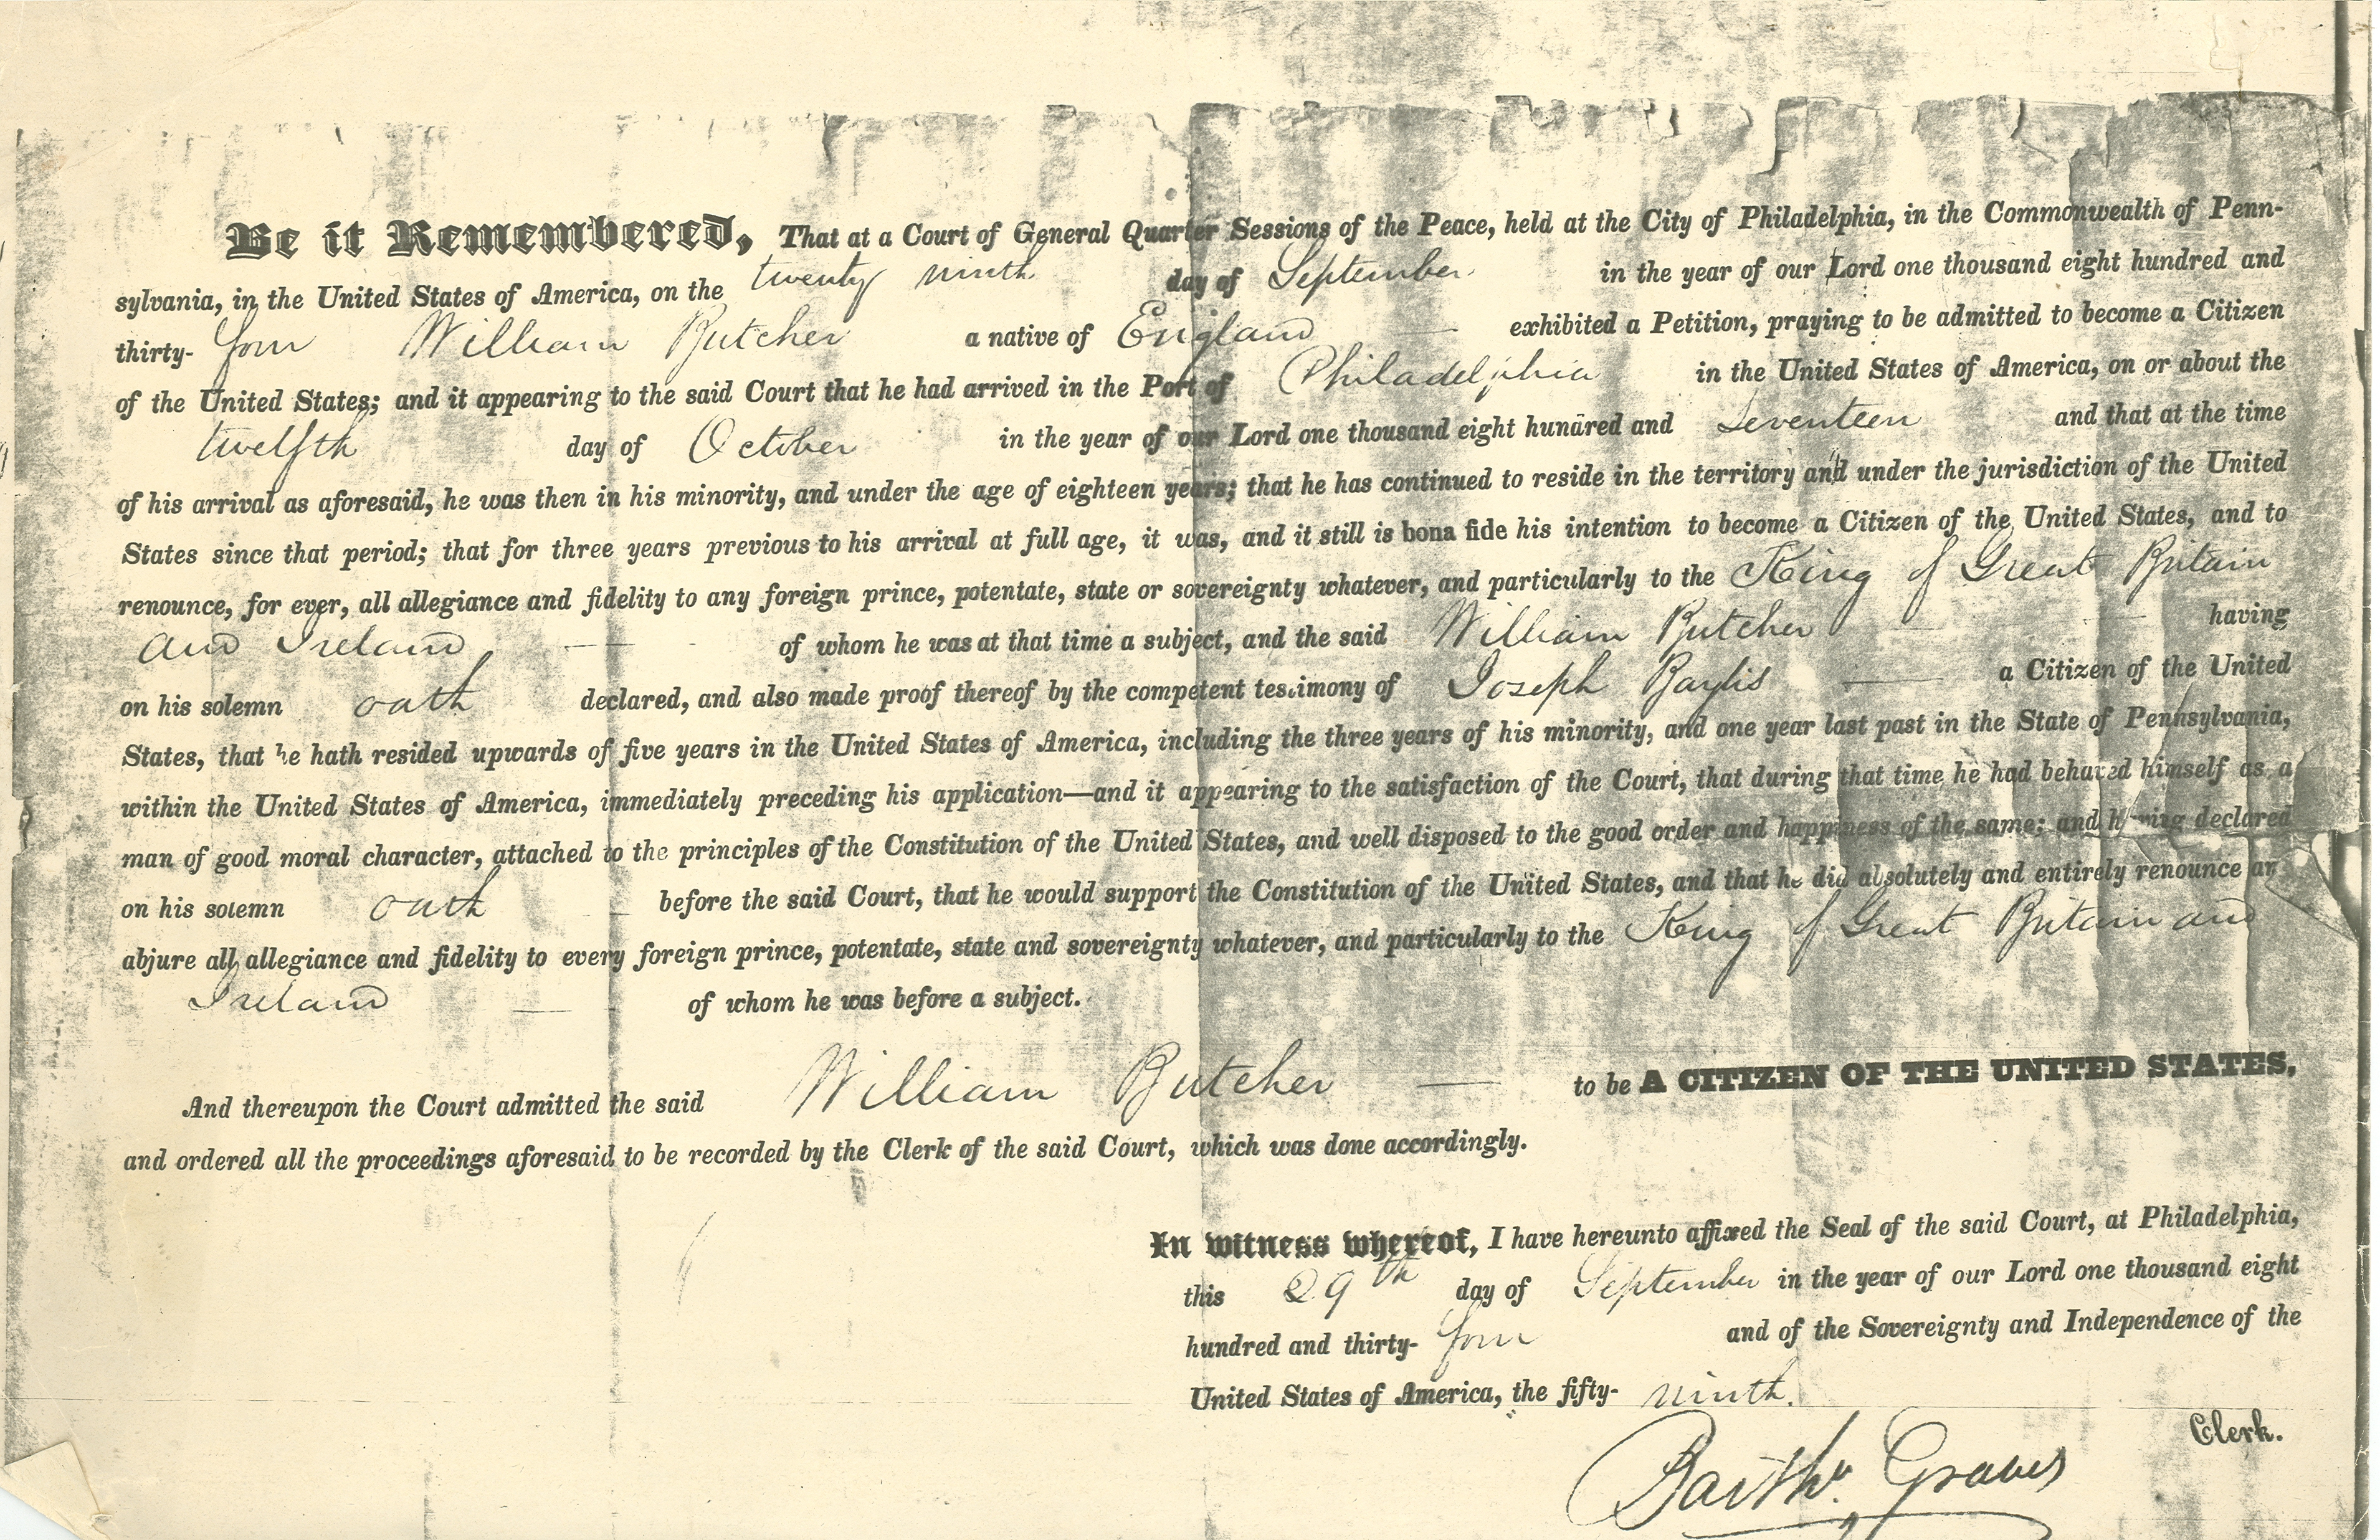 Be it Remembered, That at a Court of General Quarter Sessions of the Peace, held at the City of Philadelphia, in the Commonwealth of Penn-
sylvania, in the United States of America, on the twenty ninth day of September in the year of our Lord one thousand eight hundred and
thirty- four William Butcher a native of England exhibited a Petition, praying to be admitted to become a Citizen
of the United States; and it appearing to the said Court that he had arrived in the Port of Philadelphia in the United States of America, on or about the
twelfth day of October in the year of our Lord one thousand eight hundred and seventeen and that at the time
of his arrival as aforesaid, he was then in his minority, and under the age of eighteen years; that he has continued to reside in the territory and under the jurisdiction of the United
States since that period; that for three years previous to his arrival at full age, it was, and it still is bona fide his intention to become a Citizen of the United States, and to
renounce, for ever, all allegiance and fidelity to any foreign prince, potentate, state or sovereignty whatever, and particularly to the King of Great Britain
and Ireland of whom he was at that time a subject, and the said William Butcher having
on his solemn oath declared, and also made proof thereof by the competent testimony of Joseph Baylis a Citizen of the United
States, that he hath resided upwards of five years in the United States of America, including the three years of his minority, and one year last past in the State of Pennsylvania,
within the United States of America, immediately preceding his application—and it appearing to the satisfaction of the Court, that during that time he had behaved himself as a
man of good moral character, attached to the principles of the Constitution of the United States, and well disposed to the good order and happiness of the same; and having declared
on his solemn oath before the said Court, that he would support the Constitution of the United States, and that he did absolutely and entirely renounce an
abjure all allegiance and fidelity to every foreign prince, potentate, state and sovereignty whatever, and particularly to the King of Great Britain and
Ireland of whom he was before a subject.
And thereupon the Court admitted the said William Butcher to be A CITIZEN OF THE UNITED STATES,
and ordered all the proceedings aforesaid to be recorded by the Clerk of the said Court, which was done accordingly.
In witness whereof, I have hereunto affixed the Seal of the said Court, at Philadelphia,
this 29th day of September in the year of our Lord one thousand eight
hundred and thirty- four and of the Sovereignty and Independence of the
United States of America, the fifty- ninth.
Clerk.
Barthw. Graves